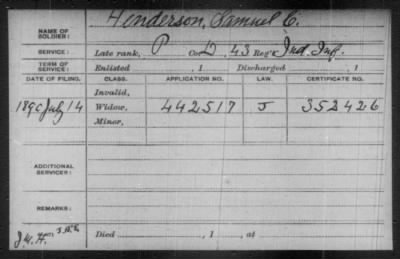 NAME OF SOLDIER: Henderson, Samuel C.
SERVICE: Late rank, P Co. D, 43 Reg't Ind. Inf.
TERM OF SERVICE: Enlisted , 1 Discharged , 1
DATE OF FILING. CLASS. APPLICATION NO. LAW. CERTIFICATE NO.
Invalid,
1890 July 14 Widow, 442517 J 352426
Minor,
ADDITIONAL SERVICES:
REMARKS:
Died , 1 , at